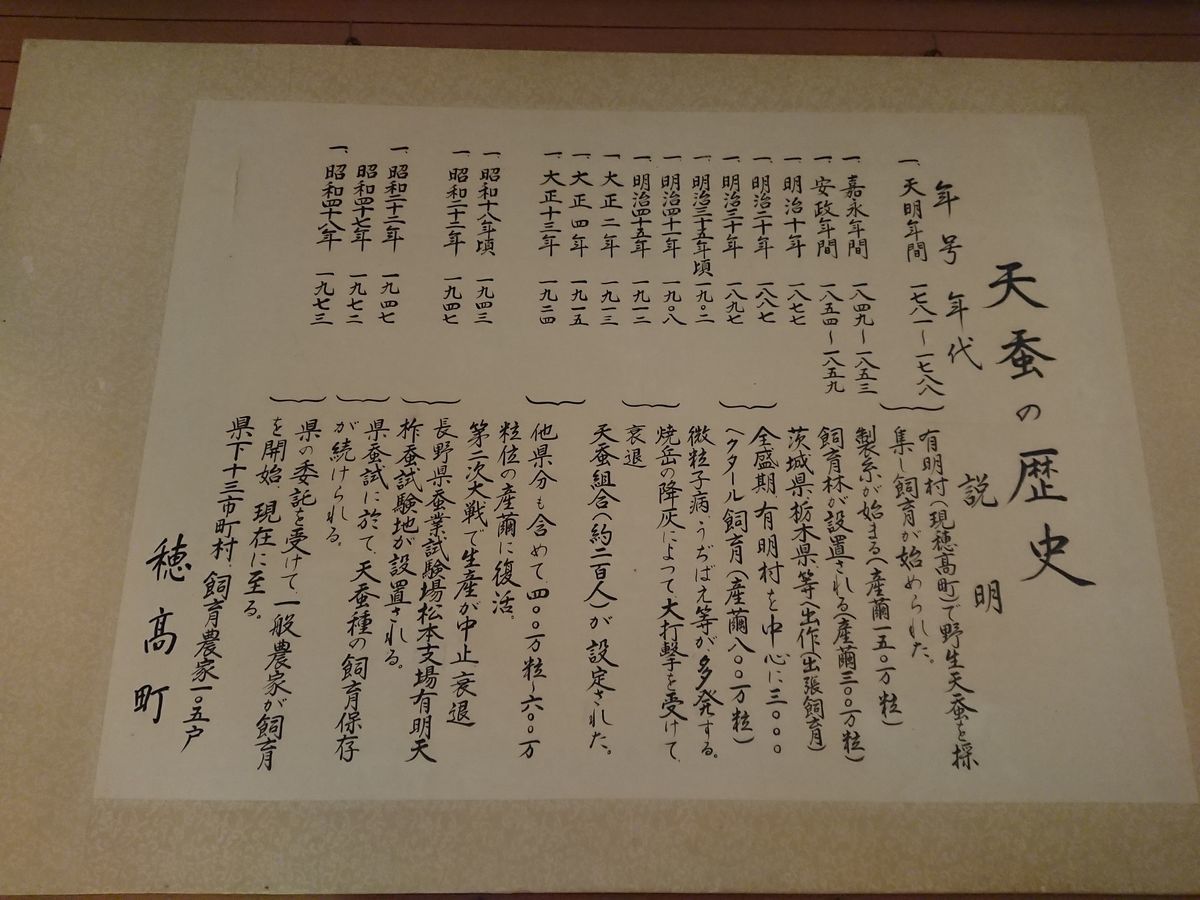 天蚕の歴史
年号 年代 説明
一、天明年間 一七八一〜一七八八
有明村(現穂高町)で野生天蚕を採
集し飼育が始められた。
一、嘉永年間 一八四九〜一八五三
製糸が始まる(産繭一五〇万粒)
一、安政年間 一八五四〜一八五九
飼育林が設置される(産繭三〇〇万粒)
一、明治十年 一八七七
茨城県、栃木県、等へ出作(出張飼育)
一、明治二十年 一八八七
一、明治三十年 一八九七
全盛期 有明村を中心に三〇〇〇
ヘクタール飼育(産繭八〇〇万粒)
一、明治三十五年頃 一九〇二
微粒子病、うぢばえ等が、多発する。
一、明治四十一年 一九〇八
一、明治四十五年 一九一二
焼岳の降灰によって、大打撃を受けて、
衰退
一、大正二年 一九一三
天蚕組合(約二百人)が設定された。
一、大正四年 一九一五
一、大正十三年 一九二四
他県分も含めて、四〇〇万粒〜六〇〇万
粒位の産繭に復活。
一、昭和十八年頃 一九四三
第二次大戦で生産が中止、衰退
一、昭和二十二年 一九四七
長野県蚕業試験場松本支場有明天
柞蚕試験地が設置される。
一、昭和二十二年 一九四七
昭和四十七年 一九七二
県蚕試に於て、天蚕種の飼育保存
が続けられる。
一、昭和四十八年 一九七三
県の委託を受けて、一般農家が飼育
を開始、現在に至る。
県下十三市町村、飼育農家一〇五戸
穂高町